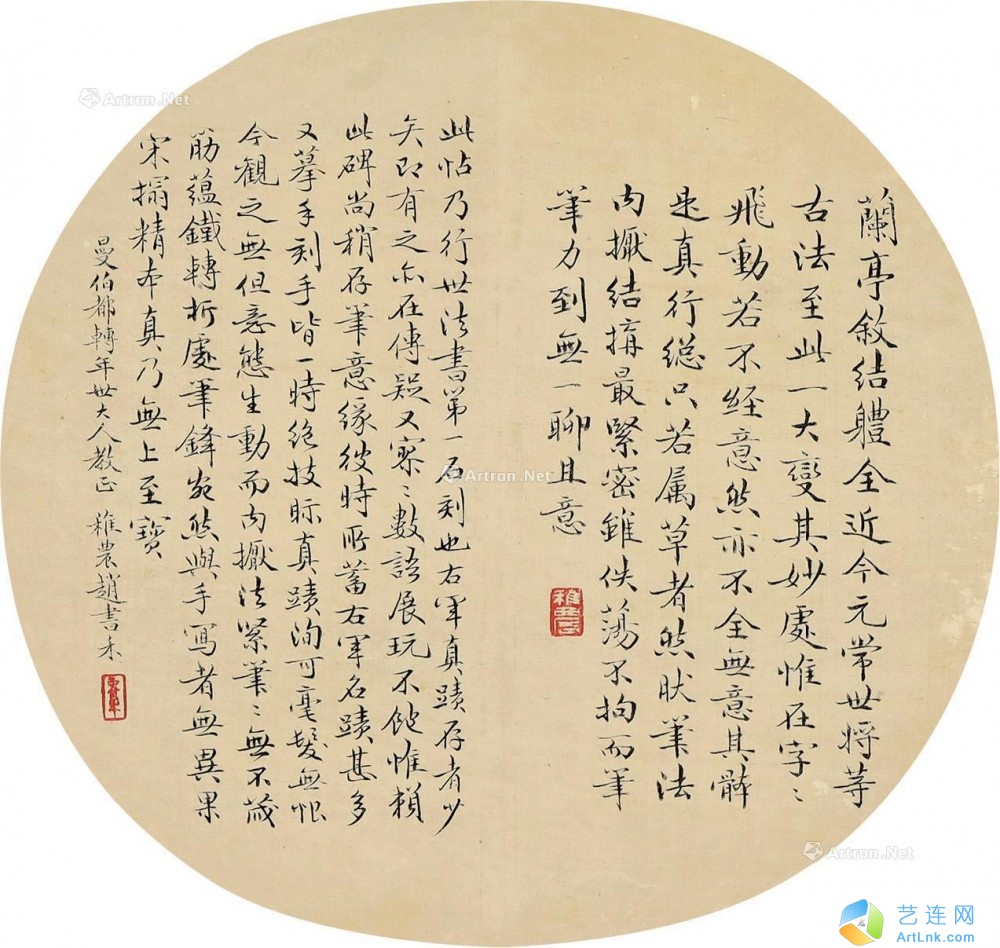 蘭亭敘結體全近今元常世將等
古法至此一大變其妙處惟在字〻
飛動若不經意然亦不全無意其骵
是真行緫只若属草者然肰筆法
内擫結搆最緊密雖佚蕩不拘而筆
筆力到無一聊且意
此帖乃行世法書第一石刻也右軍真蹟存者少
矣即有之亦在傳疑又寥〻數語展玩不飽惟賴
此碑尚稍存筆意緣彼時所蓄右軍名蹟甚多
又摹手刻手皆一時絶技眎真蹟洵可毫髮無恨
今觀之無但意態生動而内擫法緊筆〻無不藏
筋藴鐵轉折處筆鋒宛然與手寫者無異果
宋搨精本真乃無上至寶
曼伯都轉年世大人教正 稚農趙書禾
Artron.Net
Artron.Net
Artron.Net
艺连网
ArtLnk.com